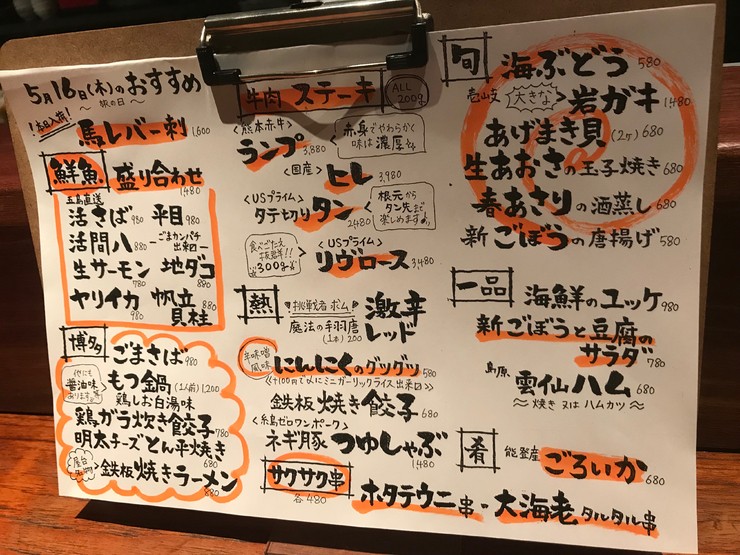 5月16日(木)のおすすめ
〜旅の日〜
1本日入荷!
馬レバー刺 1,600
鮮魚 盛り合わせ 1480
五島直送
活さば 980 平目 980
活間八 880 ごまカンパチ出来ロー
生サーモン 780 地ダコ 880
ヤリイカ 880 帆立貝柱 880
博多 ごまさば 980
他にも醤油味あります。
もつ鍋 (1人前) 1,200
鶏しお白湯味
鶏ガラ炊き餃子 780
明太チーズとん平焼き 680
屋台
鉄板焼きラーメン 880
牛肉 ステーキ
ALL 200g
<熊本赤牛>
ランプ 3,880
赤身でやわらかく
味は濃厚
<国産>
ヒレ 3,980
<USプライム>
タテセクリタン 2480
根元から
タン先まで
楽しめます
食べごたえ
抜群!!
300g
<USプライム>
リヴロース 3,480
熱 挑戦者求ム 激辛レッド
魔法の手羽唐 (1本) 200
辛味噌風味
にんにくのグツグツ 580
<+100円で〆にミニガーリックライス出来ロ>
鉄板焼き餃子 680
<糸島ゼロワンポーク>
ネギ豚つゆしゃぶ 1,480
サクサク串
各480
ホタテウニ串・大海老タルタル串
旬 海ぶどう 580
壱岐 大きな 岩ガキ 1480
あげまき貝 (2ヶ) 680
生あおさの玉子焼き 680
春あさりの酒蒸し 680
新ごぼうの唐揚げ 580
一品 海鮮のユッケ 980
新ごぼうと豆腐の
サラダ 780
島原 雲仙ハム 680
〜焼き又はハムカツ〜
肴 能登産 ごろいか 680